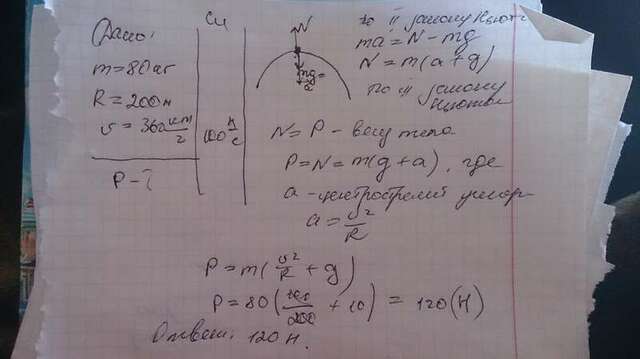 Дано:
m = 80 кг
R = 200 м
v = 360 км/г
P - ?
Си
100 м/с
N
mg
a
по II закону Ньют
ma = N - mg
N = m(a + g)
по III закону
Ньютона
N = P - весу тела
P = N = m(g + a), где
a - центрострем ускор
a = v²/R
P = m(v²/R + g)
P = 80( /200 + 10) = 120 (Н)
Ответ: 120 Н.